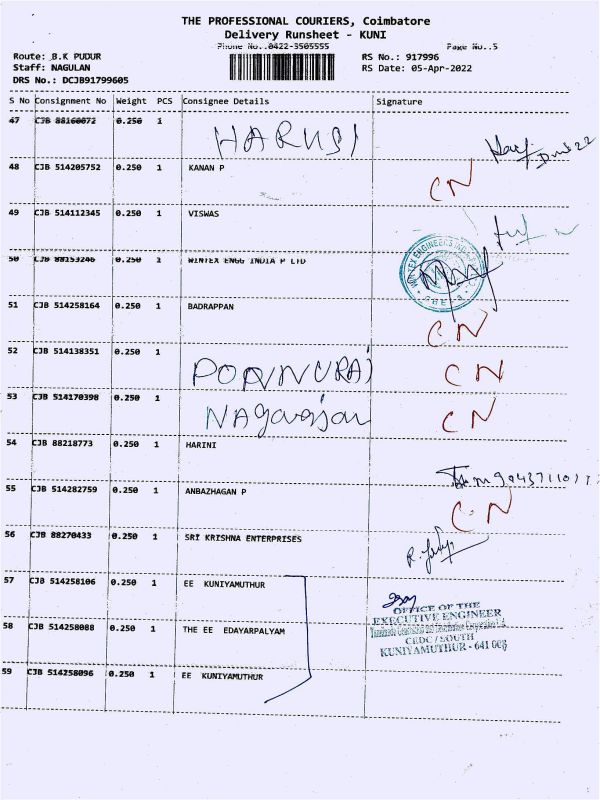 THE PROFESSIONAL COURIERS, Coimbatore
Delivery Runsheet - KUNI
Phone No..0422-3505555
Page No..5
Route: .B.K PUDUR
RS No.: 917996
Staff: NAGULAN
RS Date: 05-Apr-2022
DRS No.: DCJB91799605
S No Consignment No Weight PCS Consignee Details Signature
47 CJB 88160072 0.250 1 HARUSI
48 CJB 514205752 0.250 1 KANAN P CN
49 CJB 514112345 0.250 1 VISWAS
50 CJB 88153246 0.250 1 WINTEX ENGG INDIA P LTD
51 CJB 514258164 0.250 1 BADRAPPAN CN
52 CJB 514138351 0.250 1 PONNURAJ CN
53 CJB 514170398 0.250 1 NAGarajan CN
54 CJB 88218773 0.250 1 HARINI
55 CJB 514282759 0.250 1 ANBAZHAGAN P CN
56 CJB 88270433 0.250 1 SRI KRISHNA ENTERPRISES
57 CJB 514258106 0.250 1 EE KUNIYAMUTHUR
OFFICE OF THE
EXECUTIVE ENGINEER
58 CJB 514258088 0.250 1 THE EE EDAYARPALYAM
CEDC / SOUTH
KUNIYAMUTHUR - 641 008
59 CJB 514258096 0.250 1 EE KUNIYAMUTHUR